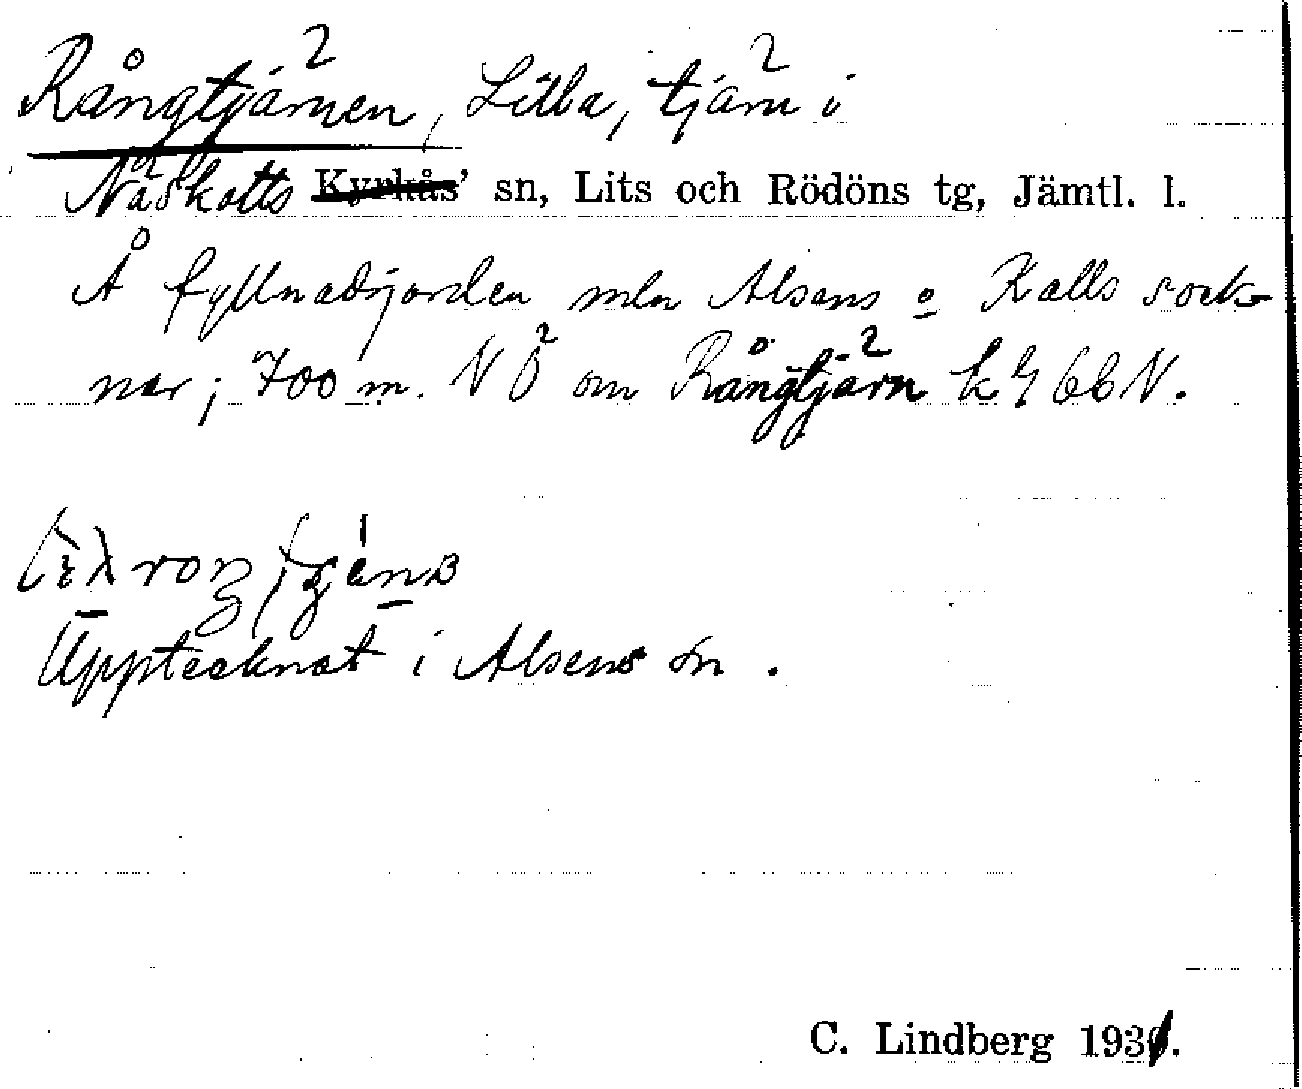 Rångtjärnen, Lilla, tjärn i
Näskotts Kyrkås' sn, Lits och Rödöns tg, Jämtl. l.
Å fyllnadsjorden mln Alsens o Kalls sock-
nar; 700 m. NÖ om Rångtjärn k 4 66 N.
Upptecknat i Alsens sn.
C. Lindberg 1931.